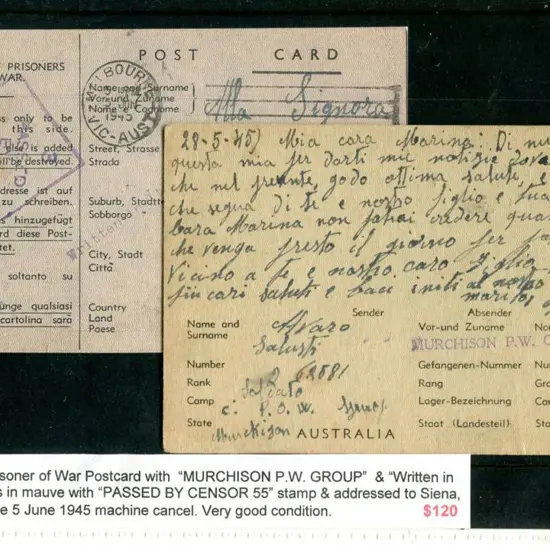 POST CARD
PRISONERS
WAR.
MELBOURNE
1945
VIC-AUST
Name and Surname
Vor-und Zuname
Nome e Cognome
Alla Signora
ess only to be
this side.
else is added
ill be destroyed.
Street, Strasse
Strada
dresse ist auf
zu schreiben.
hinzugefügt
rd diese Post-
tet.
Suburb, Stadtt
Sobborgo
Written
City, Stadt
Città
soltanto su
unge qualsiasi
cartolina sarà
Country
Land
Paese
28-5-45) Mia cara Marina: Di nu
questa mia per darti mie notizie
che nel presente godo ottima salute, e
che segua di te e nostro figlio e tua
Cara Marina non potrai credere quan
che venga presto il giorno per
Vicino a te e nostro caro figlio
più cari saluti e baci uniti al nostro
marito,
Sender
Absender
Name and
Surname
Alvaro
Salusti
Vor-und Zuname
MURCHISON P.W. G
Number
62581
Gefangenen-Nummer
Rank
Soldato
Rang
Camp
P.O.W. Group
Lager-Bezeichnung
State
Murchison
AUSTRALIA
Staat (Landesteil)
isoner of War Postcard with "MURCHISON P.W. GROUP" & "Written in
s in mauve with "PASSED BY CENSOR 55" stamp & addressed to Siena,
e 5 June 1945 machine cancel. Very good condition.
$120